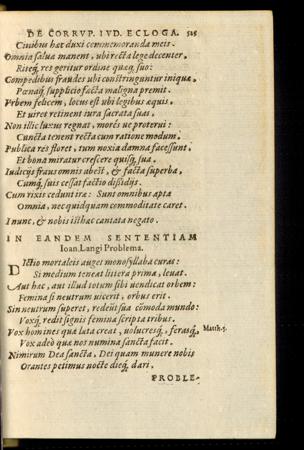 DE CORRVP. IVD. ECLOGA. 525
Ciuibus hæc duxi commemoranda meis.
Omnia salua manent, ubi recta lege decenter,
Riteq́, res geritur ordine quæq́, suo:
Compedibus fraudes ubi constringuntur iniquæ,
Pœnaq́, supplicio facta maligna premit.
Vrbem felicem, locus est ubi legibus æquis,
Et uiret retinent iura sacrata suas.
Non illic luxus regnat, morés ue proterui:
Cuncta tenent recta cum ratione modum.
Publica res floret, tum noxia damna facessunt,
Et bona miratur crescere quisq́, sua.
Iudicijs fraus omnis abest, & facta superba,
Cumq́, suis cessat factio dissidijs.
Cum rixis cedunt iræ: Sunt omnibus apta
Omnia, nec quidquam commoditate caret.
I nunc, & nobis isthæc cantata negato.
IN EANDEM SENTENTIAM
Ioan. Langi Problema.
Dictio mortaleis auget monosyllaba curas:
Si medium teneat littera prima, leuat.
Aut hæc, aut illud totum sibi uendicat orbem:
Femina si neutrum uicerit, orbus erit.
Sin neutrum superet, redeunt sua cômoda mundo:
Voxq́, redit signis femina scripta tribus.
Vox homines quæ lata creat, uolucresq́, ferasq́, Matth. 5.
Vox adeò quæ nos numina sancta facit.
Nimirum Dea sancta, Dei quam munere nobis
Orantes petimus nocte dieq́, dari,
PROBLE-